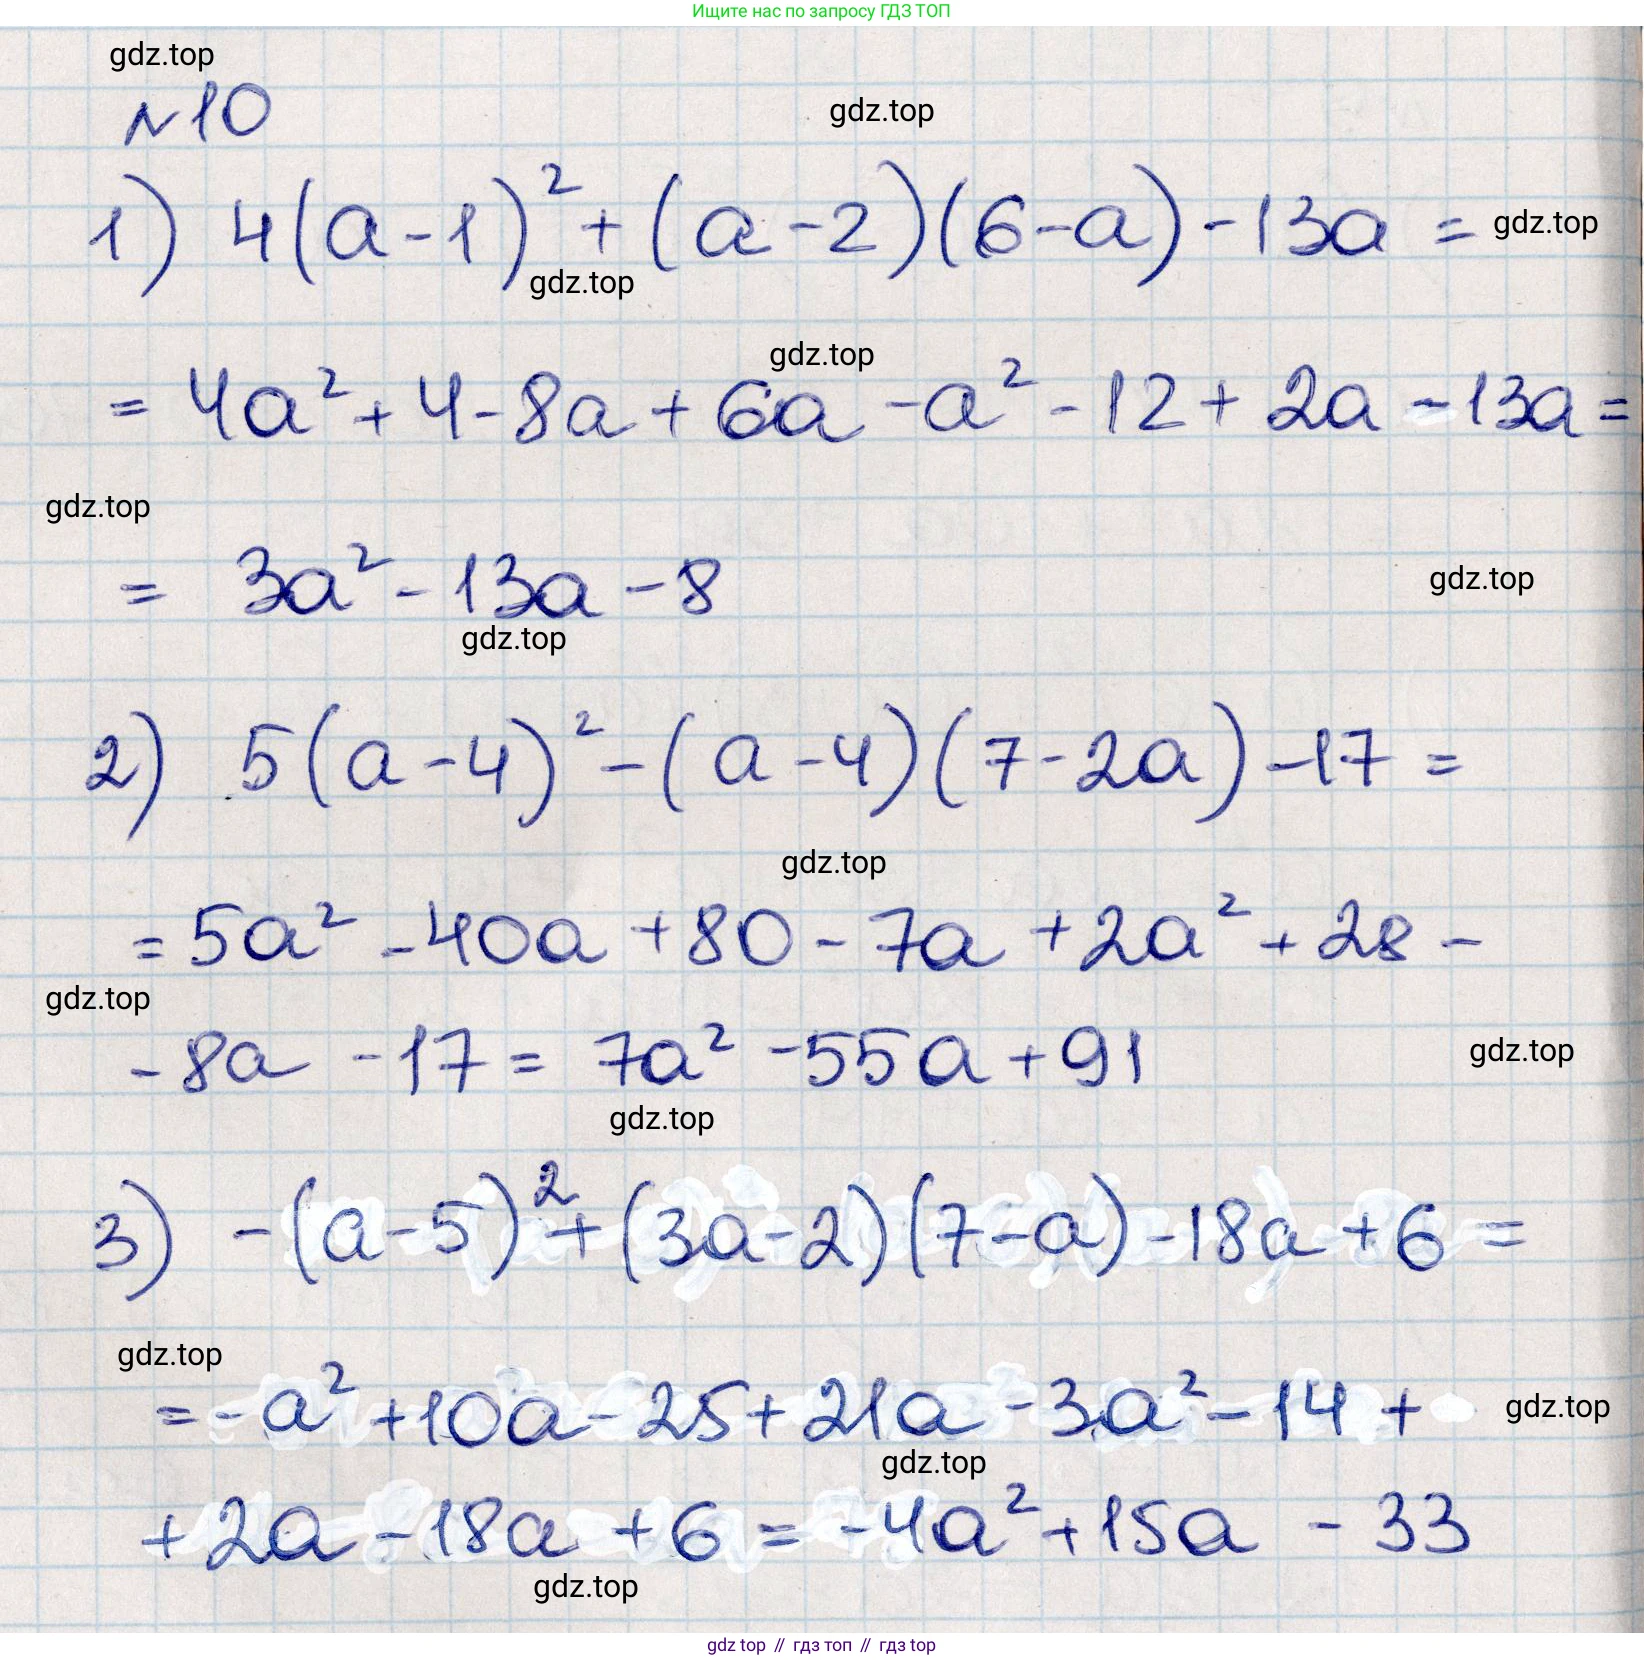 Ищите нас по запросу ГДЗ ТОП
gdz.top
№10
gdz.top
1) 4(a-1)²+(a-2)(6-a)-13a=
gdz.top
gdz.top
gdz.top
=4a²+4-8a+6a-a²-12+2a-13a=
gdz.top
=3a²-13a-8
gdz.top
gdz.top
2) 5(a-4)²-(a-4)(7-2a)-17=
gdz.top
=5a²-40a+80-7a+2a²+28-
gdz.top
-8a-17=7a²-55a+91
gdz.top
gdz.top
3) -(a-5)²+(3a-2)(7-a)-18a+6=
gdz.top
=-a²+10a-25+21a-3a²-14+
gdz.top
gdz.top
+2a-18a+6=-4a²+15a-33
gdz.top
gdz top // гдз топ // гдз top